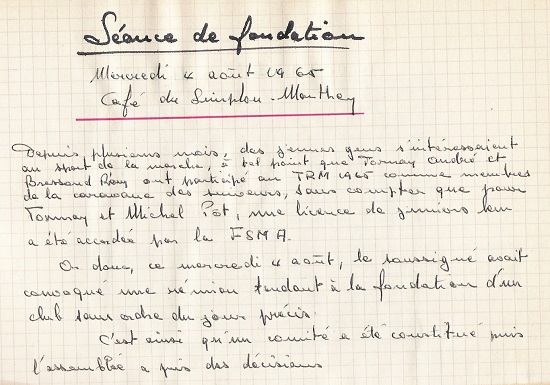 Séance de fondation
Mercredi 4 août 1965
Café du Simplon-Monthey
Depuis plusieurs mois, des jeunes gens s'intéressaient
au sport de la marche, à tel point que Tornay André et
Bressoud Rémy ont participé au TRM 1965 comme membres
de la caravane des suiveurs, sans compter que pour
Tornay et Michel Pôt, une licence de juniors leur
a été accordée par la FSMA.
Or donc, ce mercredi 4 août, le soussigné avait
convoqué une réunion tendant à la fondation d'un
club sans ordre du jour précis.
C'est ainsi qu'un comité a été constitué puis
l'assemblée a pris des décisions